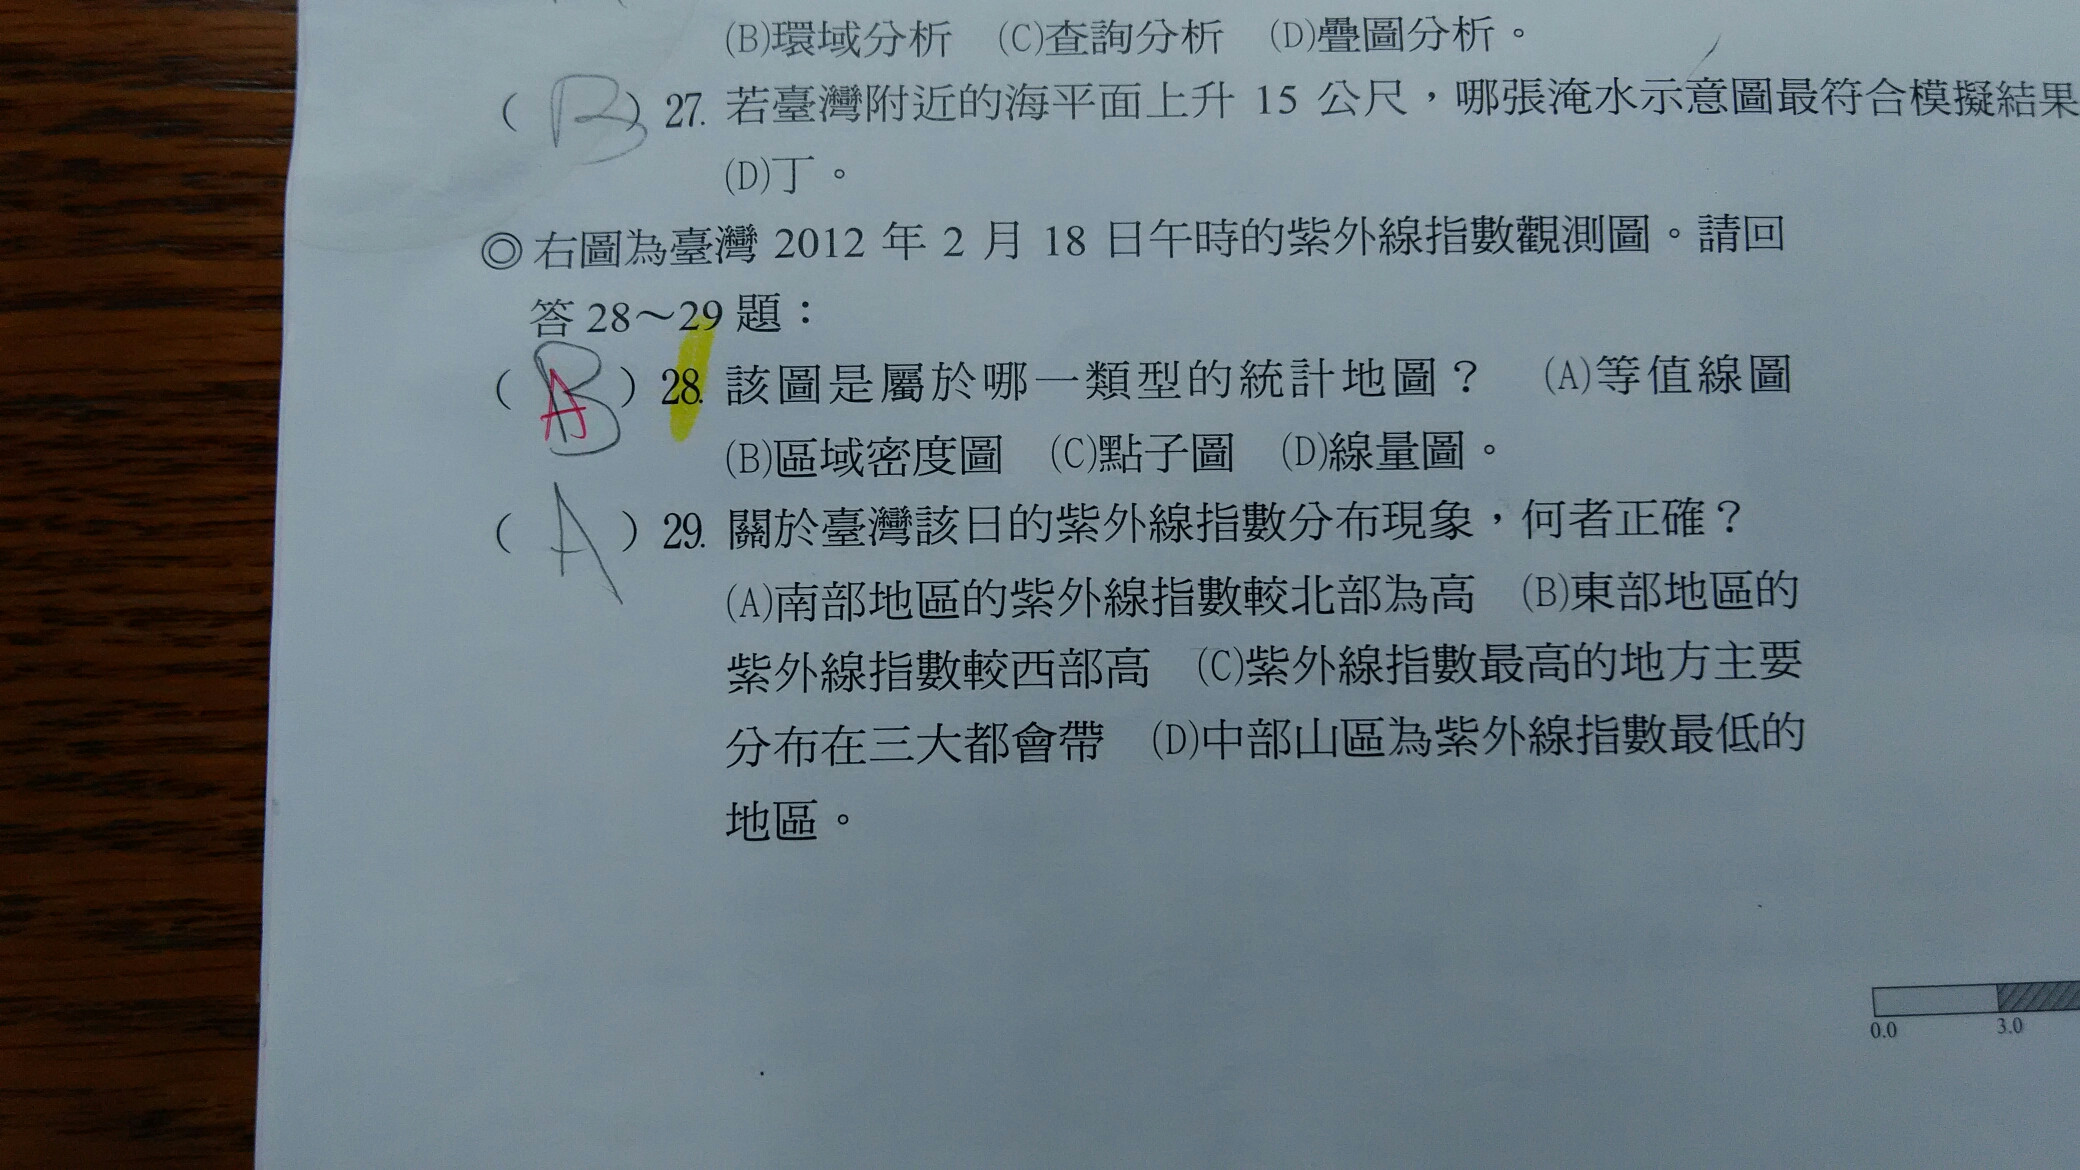 (B)環域分析　(C)查詢分析　(D)疊圖分析。
( B ) 27. 若臺灣附近的海平面上升 15 公尺，哪張淹水示意圖最符合模擬結果
(D)丁。
◎右圖為臺灣 2012 年 2 月 18 日午時的紫外線指數觀測圖。請回
答 28～29 題：
( B A ) 28. 該圖是屬於哪一類型的統計地圖？　(A)等值線圖
(B)區域密度圖　(C)點子圖　(D)線量圖。
( A ) 29. 關於臺灣該日的紫外線指數分布現象，何者正確？
(A)南部地區的紫外線指數較北部為高　(B)東部地區的
紫外線指數較西部高　(C)紫外線指數最高的地方主要
分布在三大都會帶　(D)中部山區為紫外線指數最低的
地區。
0.0 3.0